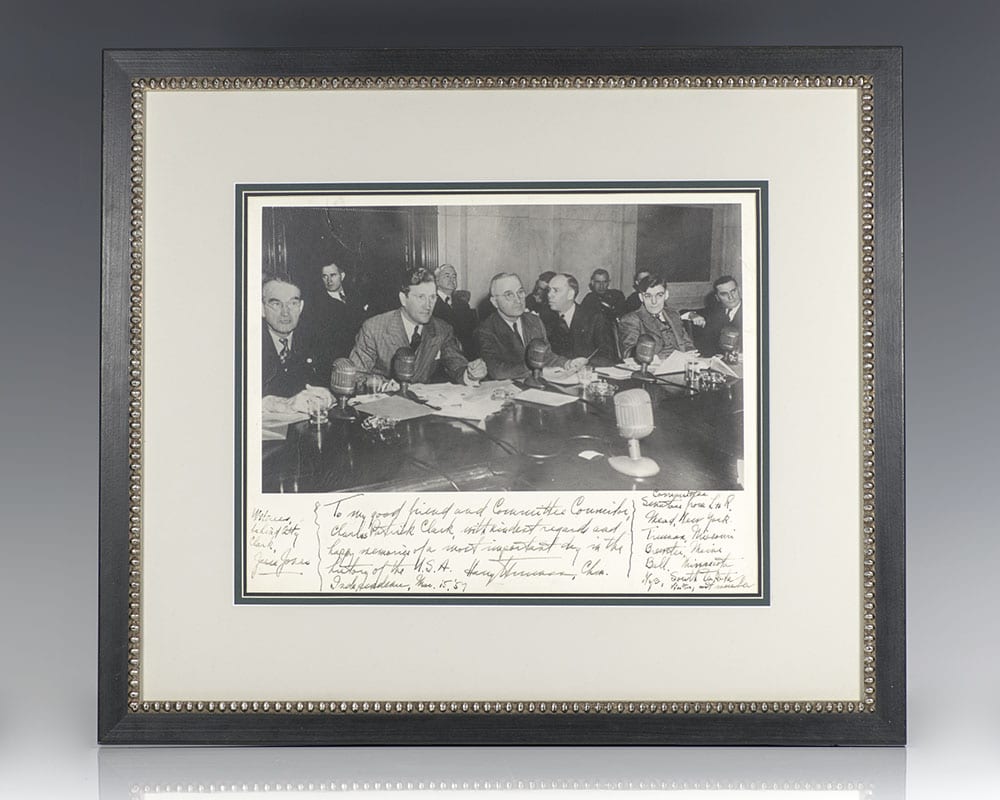 To my good friend and Committee Councilor,
Charles Patrick Clark, with kindest regards and
happy memories of a most important day in the
history of the U.S.A. Harry Truman, Chm.
Independence, Mar. 15, '57
Clark,
Jesse Jones
Committee
Senators from L to R.
Mead, New York
Truman, Missouri
Brewster, Maine
Ball, Minnesota
South Dakota